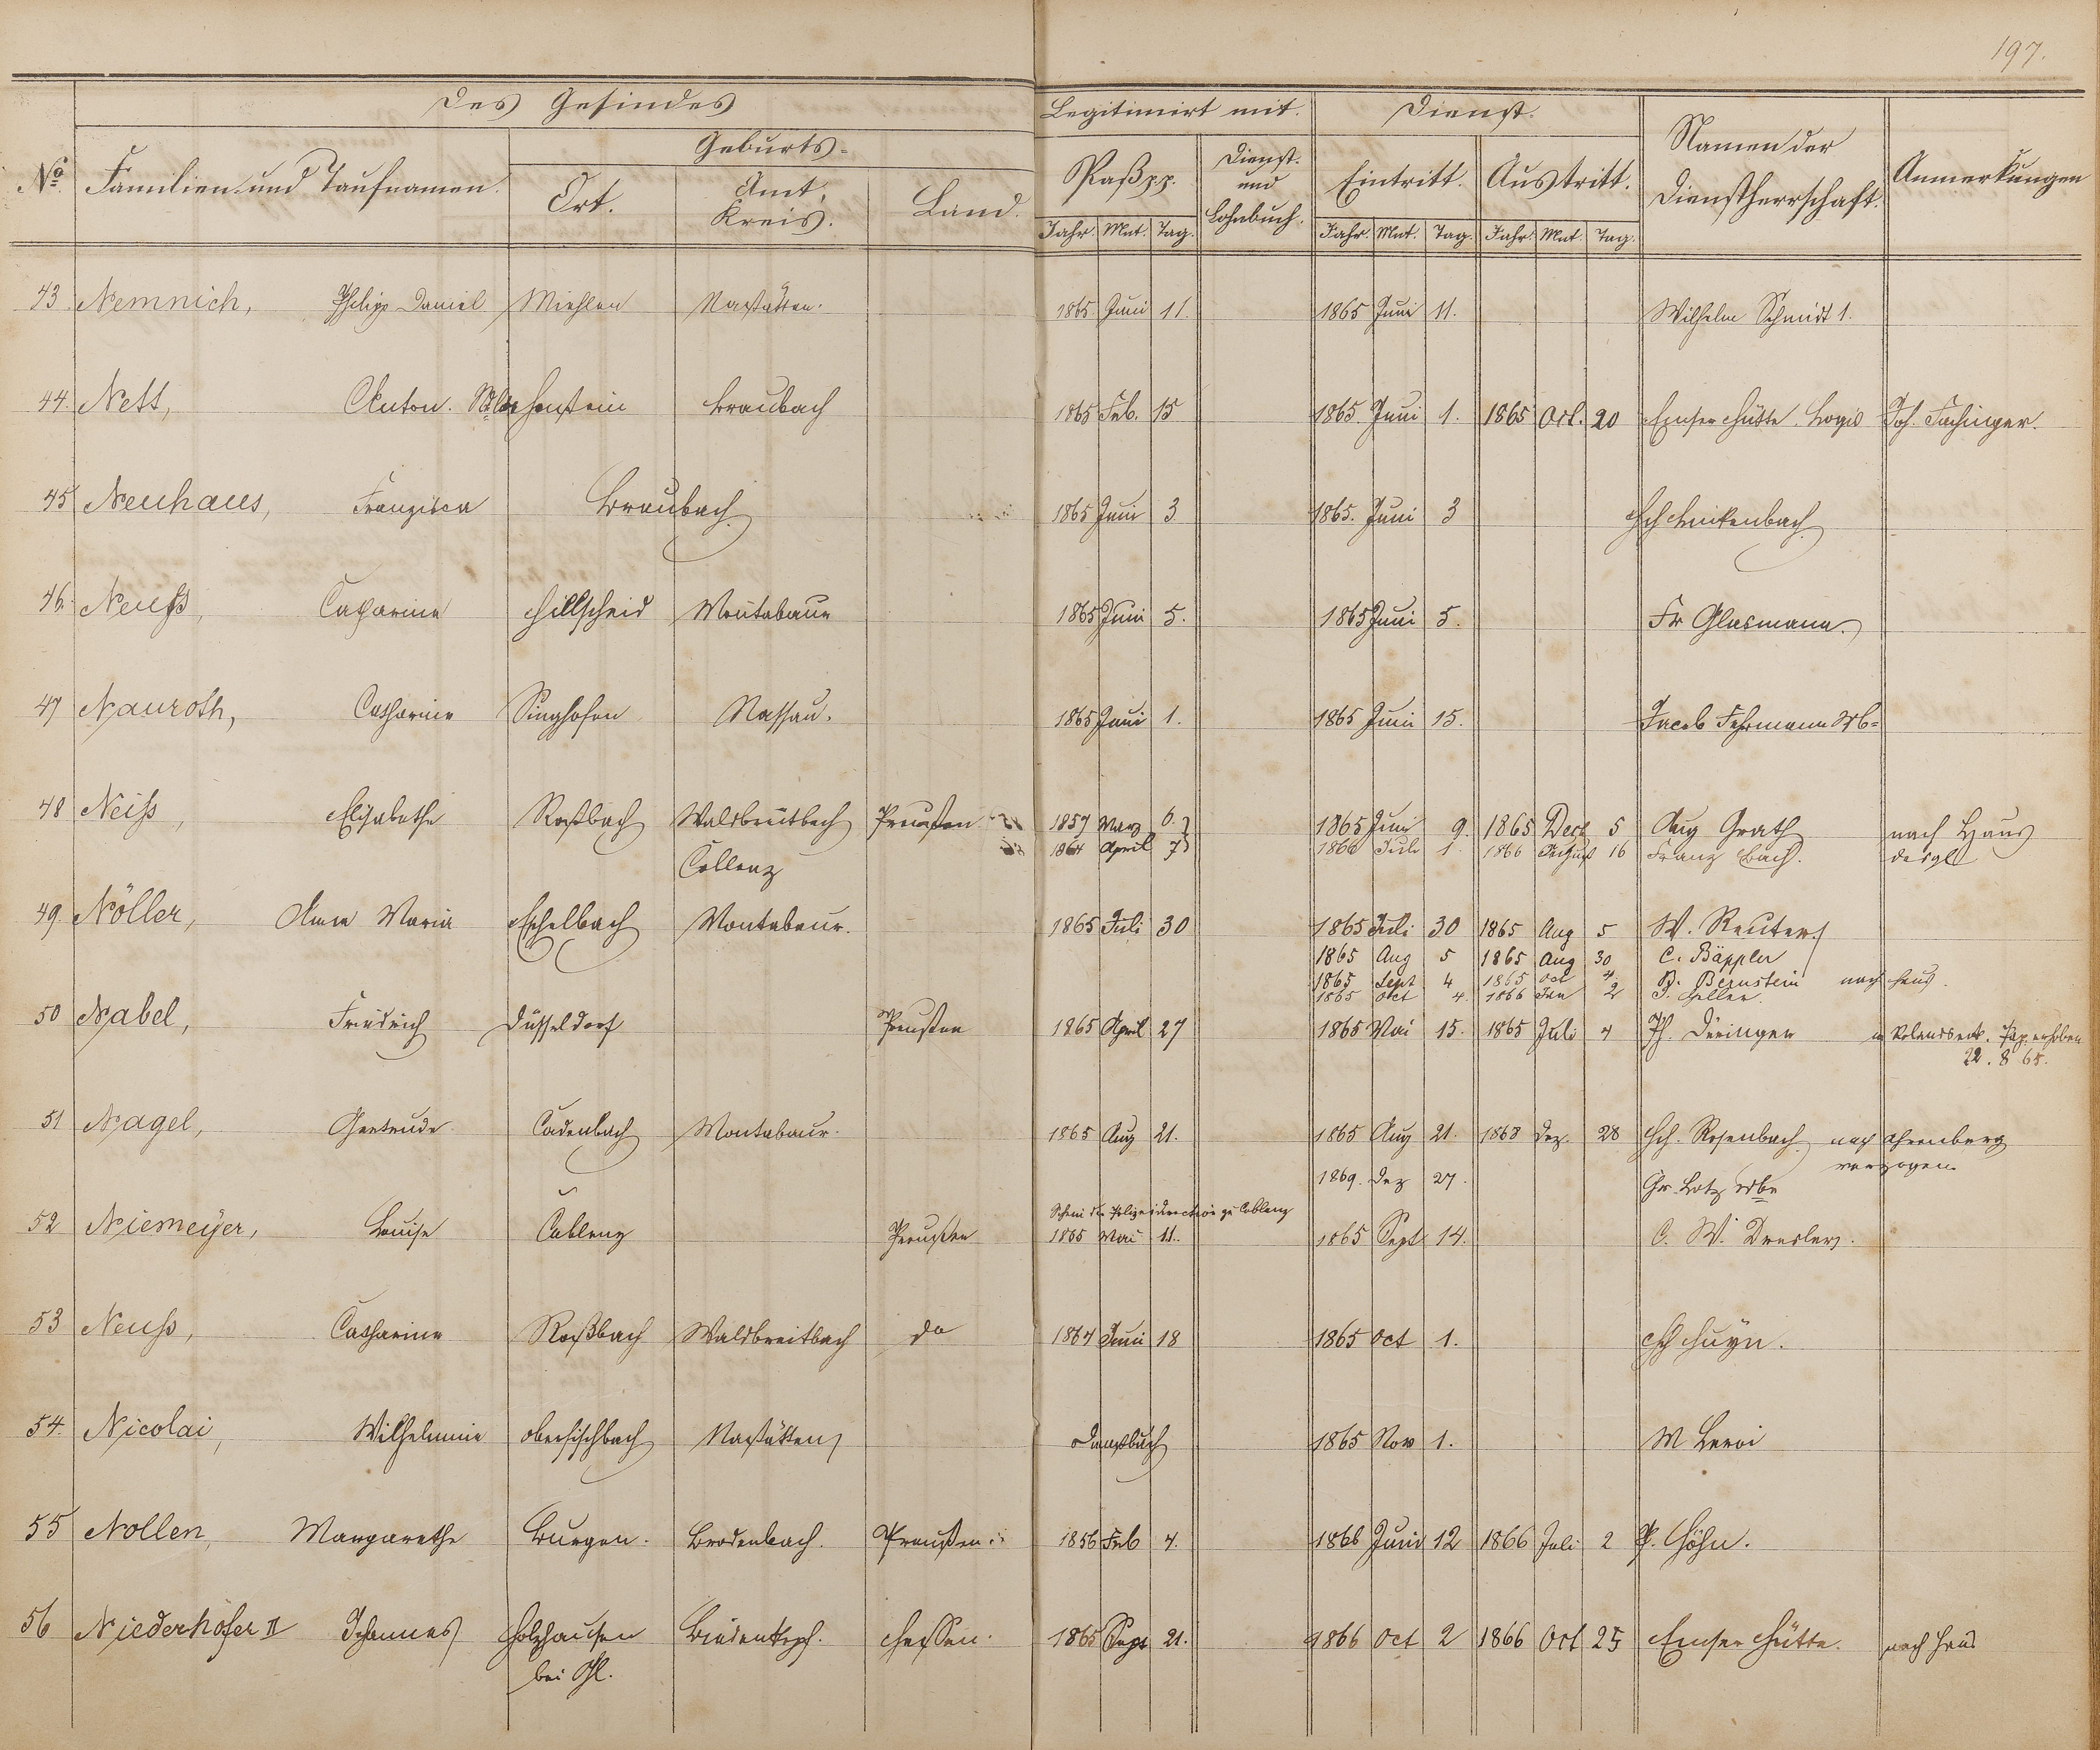 197.
des Gesindes
Legitimirt mit.
Dienst.
No. Familien- und Taufnamen.
Geburts-
Ort.
Amt,
Kreis.
Land.
Paß p.p.
Dienst-
und
Lohnbuch.
Eintritt.
Austritt.
Namen der
Dienstherrschaft.
Anmerkungen
Jahr. Mnt. Tag.
Jahr. Mnt. Tag. Jahr. Mnt. Tag.
43. Nemnich, Philipp Daniel Miehlen Nastätten. 1865 Juni 11. 1865 Juni 11. Wilhelm Schmidt 1.
44. Nett, Anton. Braubach 1865 Feb. 15 1865 Juni 1. 1865 Oct. 20 Emser Hütte. Logis Joh. Fachinger.
45 Neuhaus, Franzisca Braubach 1865 Juni 3 1865. Juni 3 Hch Linkenbach
46. Neuß, Catharina Hillscheid Montabaur 1865 Juni 5. 1865 Juni 5. Fr Glasmann.
47 Nauroth, Catharine Singhofen Nassau. 1865 Juni 1. 1865 Juni 15. Jacob Fuhrmann
48 Neiß, Elisabethe Roßbach Waldbreitbach Preußen 1857 März 6. 1865 Juni 9. 1865 Dect 5 Aug Grath nach Haus
Coblenz 1864 April 7 1866 Juli 1. 1866 August 16 Franz Bach. desgl
49. Nöller, Anna Maria Eschelbach Montabaur. 1865 Juli 30 1865 Juli 30 1865 Aug 5 W. Reuter
1865 Aug 5 1865 Aug 30 C. Bäppler
1865 Sept 4 1865 Oct 4. B. Bernstein nach Haus.
1865 Oct 4. 1866 Jan 2 J. Heller.
50 Nabel, Friedrich Düsseldorf Preußen 1865 April 27 1865 Mai 15. 1865 Juli 4 Ph. Düringer in Rolandseck. Pap. erhoben
22. 8 65.
51 Nagel, Gertrude Cadenbach Montabaur. 1865 Aug 21. 1865 Aug 21. 1868 Dez. 28 Hch. Rosenbach nach Arenberg
verzogen.
1869. Dez 27. Gr. Lotz Wbe
52 Niemeÿer, Louise Coblenz Preußen Schein der Polizeidirection zu Coblenz
1865 Mai 11. 1865 Sept 14. C. W. Dresler.
53 Neuß, Catharine Roßbach Waldbreitbach do 1864 Juni 18 1865 Oct 1. Hch Huÿn.
54. Nicolai, Wilhelmine Oberfischbach Nastätten Dienstbuch 1865 Nov 1. M Leroi
55 Nollen, Margarethe Burgen. Brodenbach. Preußen. 1856 Feb 4. 1866 Juni 12 1866 Juli 2 P. Höhn.
56 Niederhöfer II Johannes Holzhausen Biedenkopf. Hessen. 1865 Sept 21. 1866 Oct 2 1866 Oct 25 Emser Hütte. nach Haus
bei Gl.